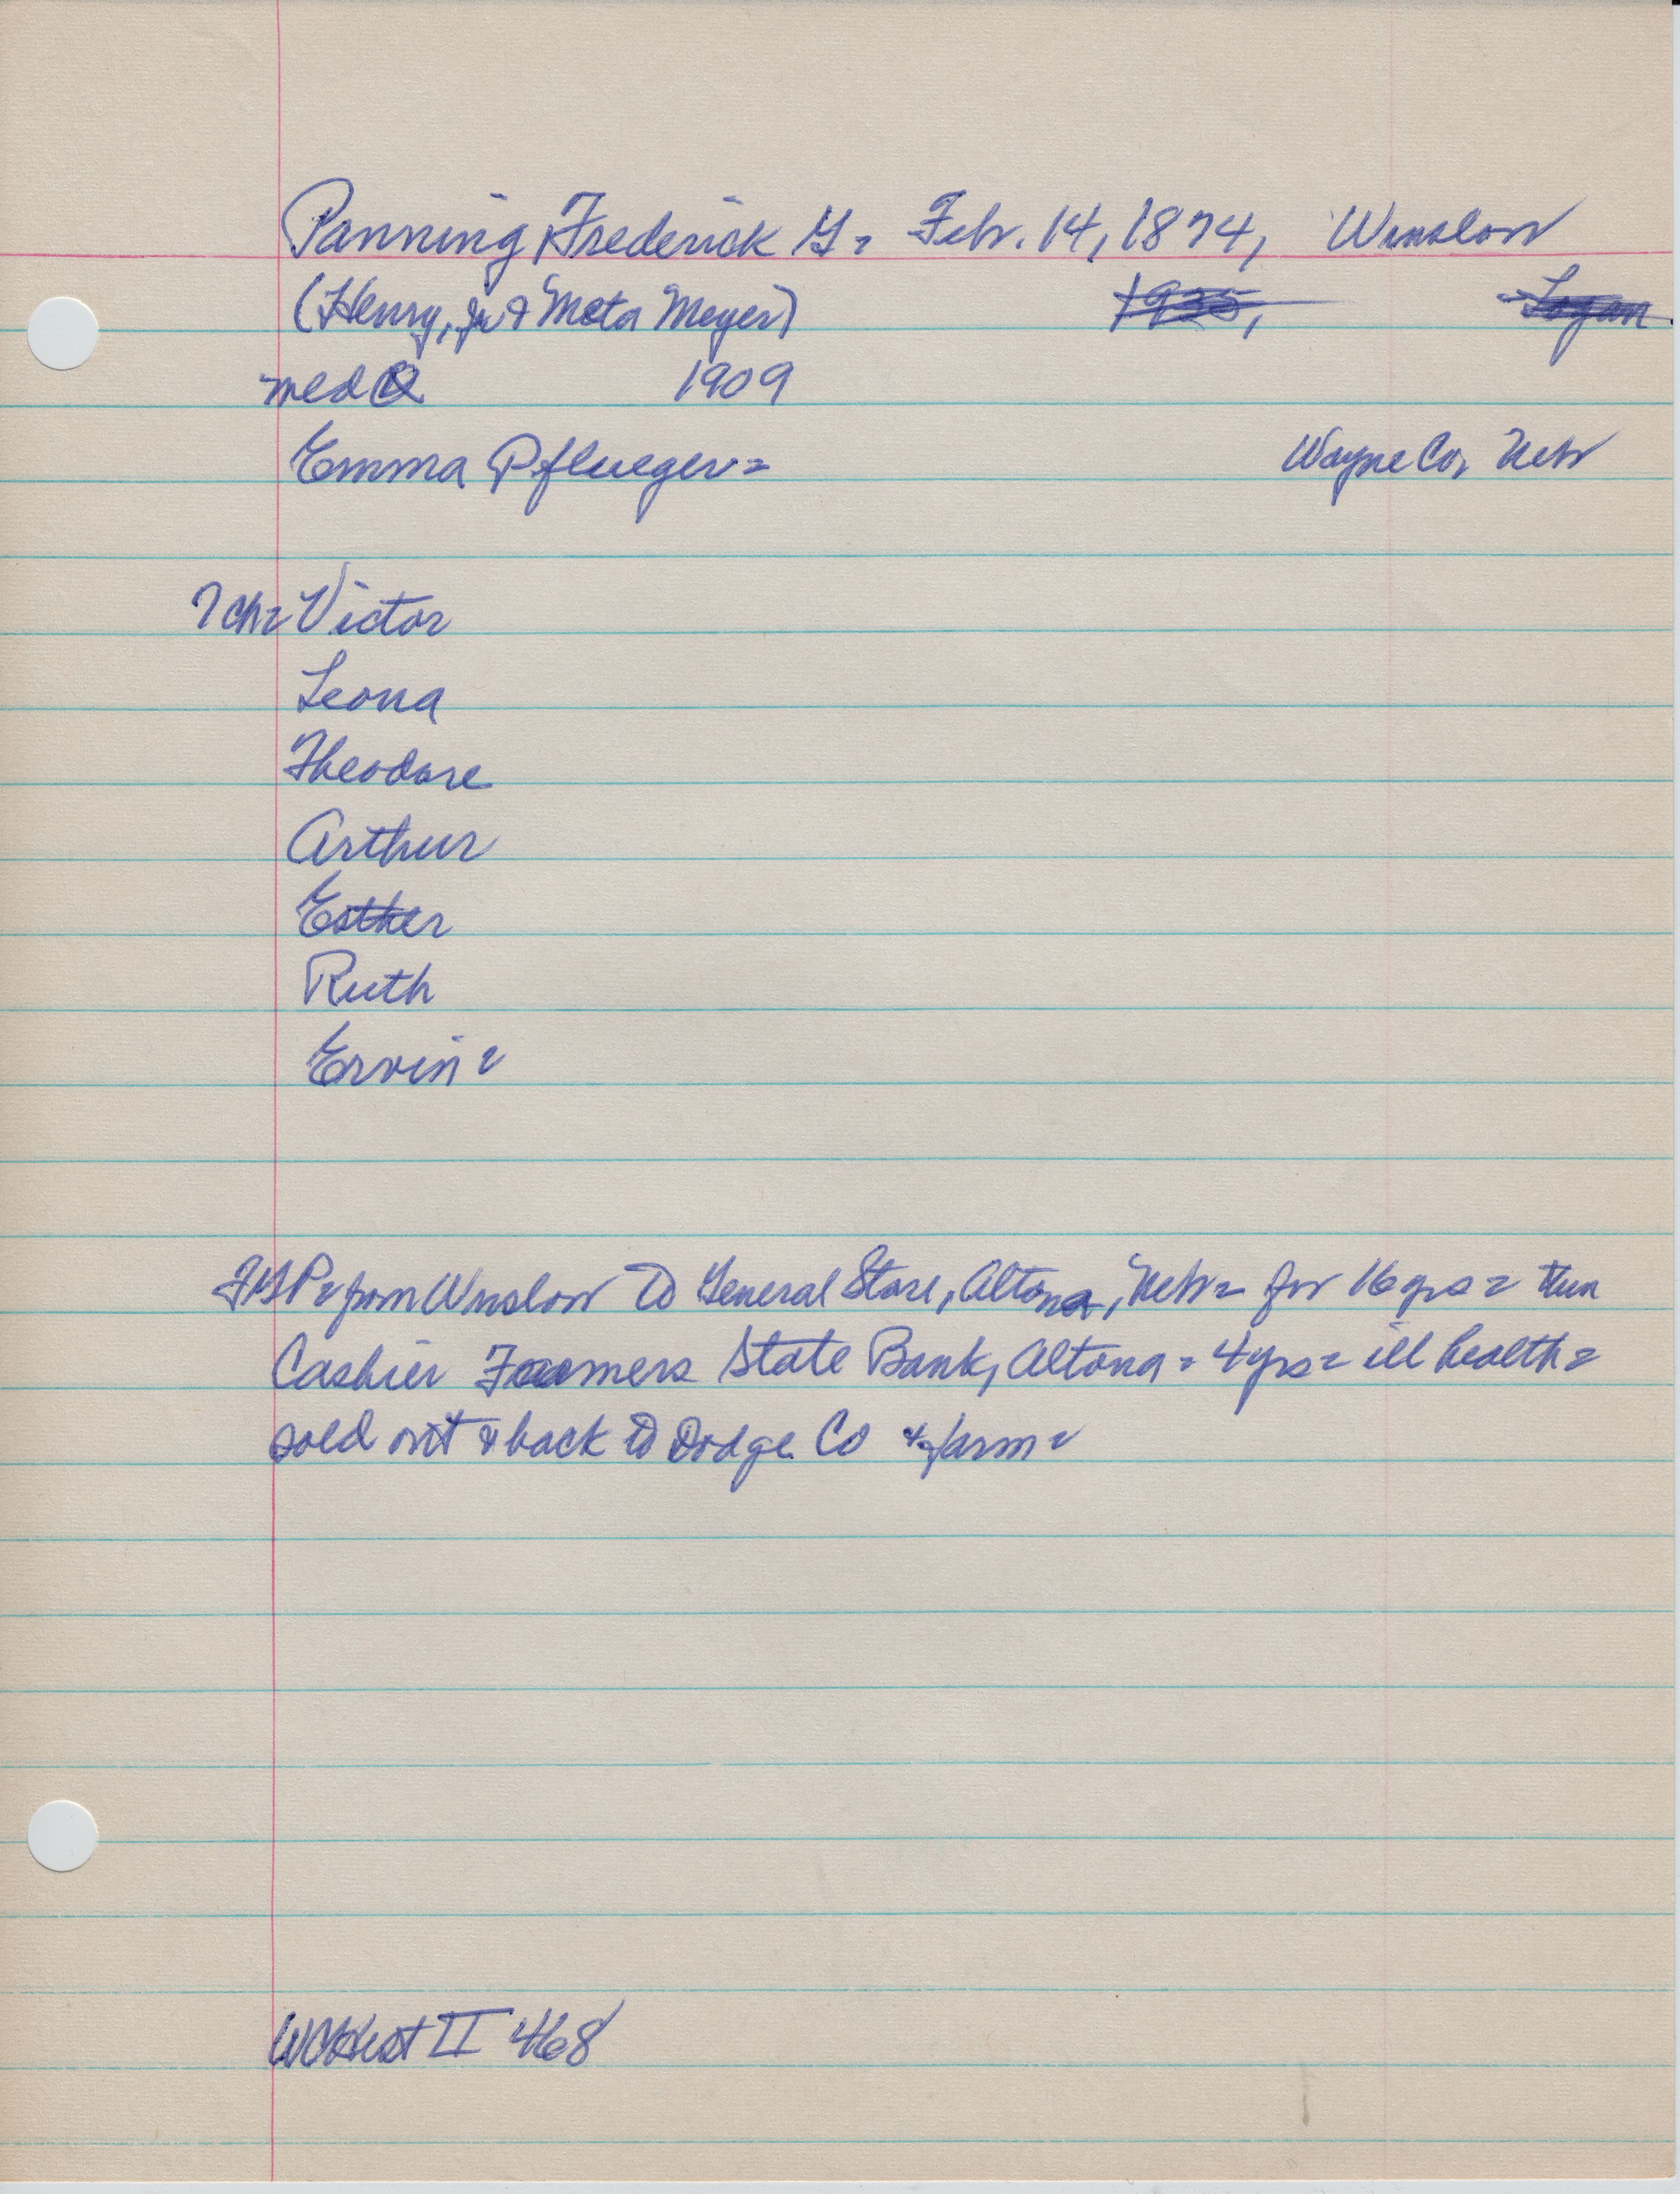 Panning, Frederick G - Feb. 14, 1874, Winslow
(Henry, Jr & Meta Meyer) 1935, - Logan
med 1909
Emma Pflueger - Wayne Co, Neb
7 ch - Victor
Leona
Theodore
Arthur
Esther
Ruth
Ervin -
FGP - from Winslow to General Store, Altona, Neb - for 16 yrs - then
Cashier Farmers State Bank, Altona - 4 yrs - ill health -
sold out & back to Dodge Co & farm -
WCHist II 468